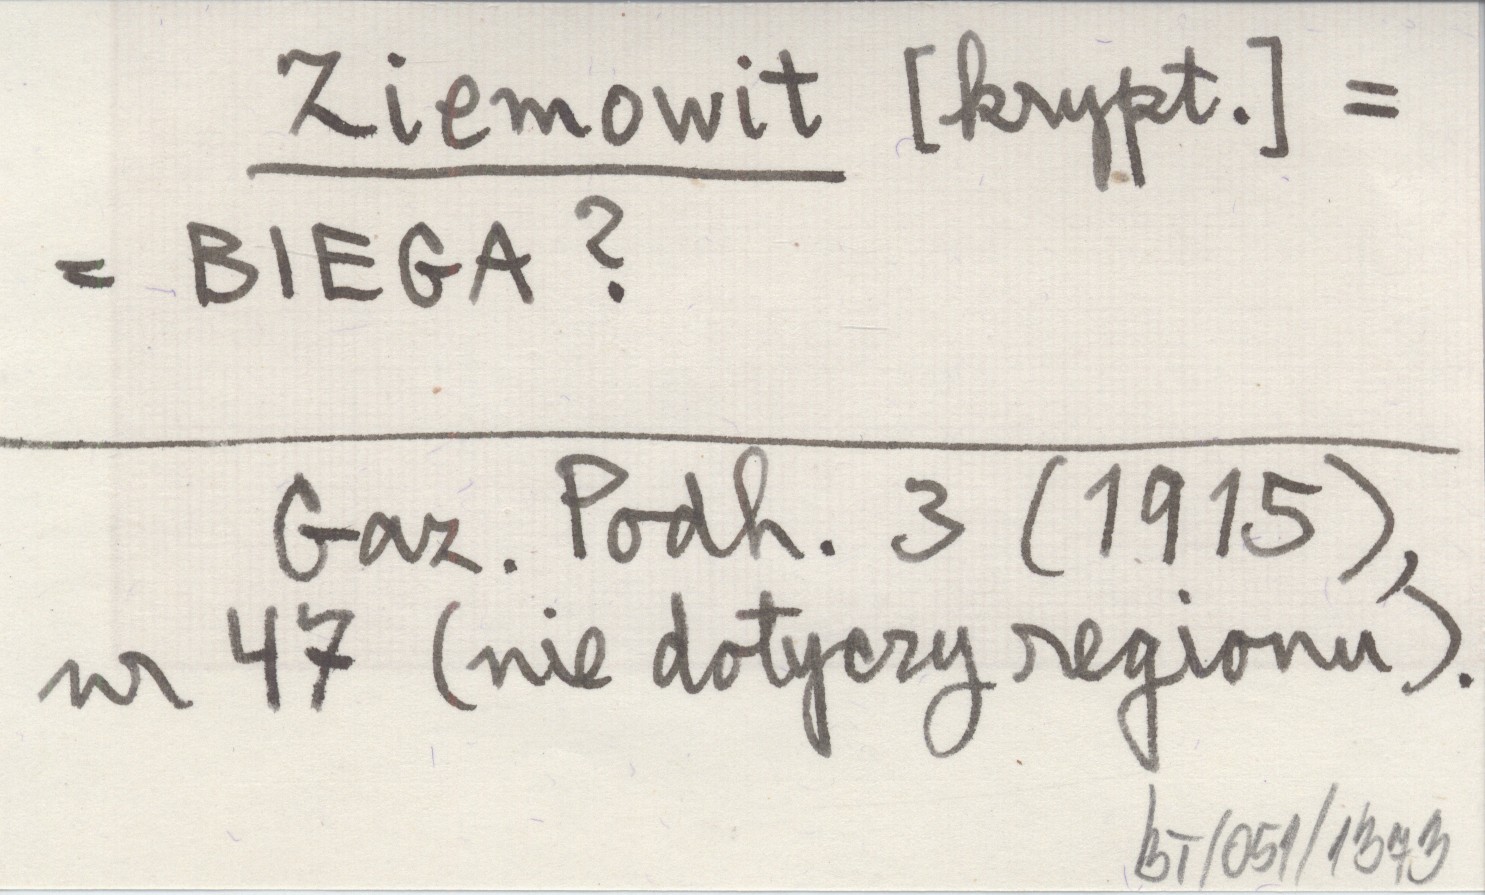 Ziemowit [krypt.] =
= BIEGA?
Gaz. Podh. 3 (1915),
nr 47 (nie dotyczy regionu).
BT/051/1373